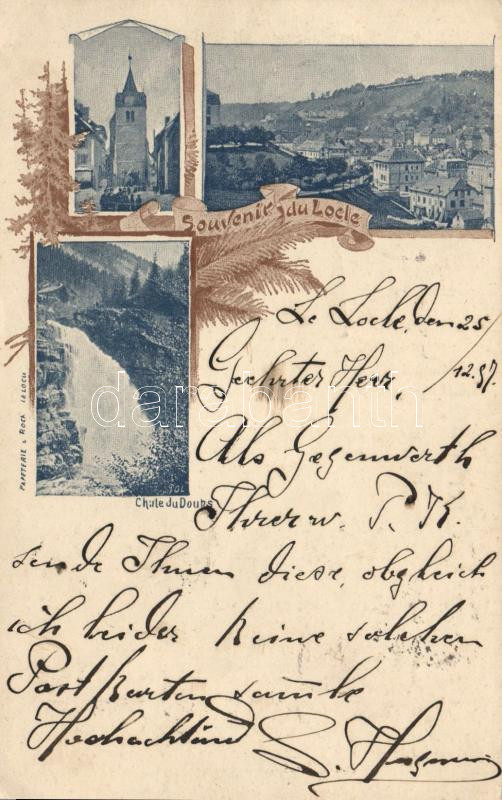 Souvenir du Locle
Le Locle, den 25/12.97.
Geehrter Herr,
Als Gegenwerth
Ihrer w. P. K.
sende Ihnen diese, obgleich
ich leider keine solchen
Post Karten samle
Hochachtend
Chûte du Doubs
PAPETERIE L. ROCH. LE LOCLE
darabanth